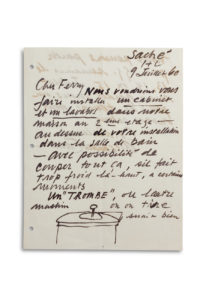 Saché
I + L
9 Juillet 60
Cher Ferry Nous voudrions vous
faire installer un cabinet
et un lavabo dans notre
maison au 2ème étage —
au dessus de votre installation
dans la salle de bain
— avec possibilité de
couper tout ça, s'il fait
trop froid là-haut, a certains
moments
Un "TROMBE", ou l'autre
machin où on tire